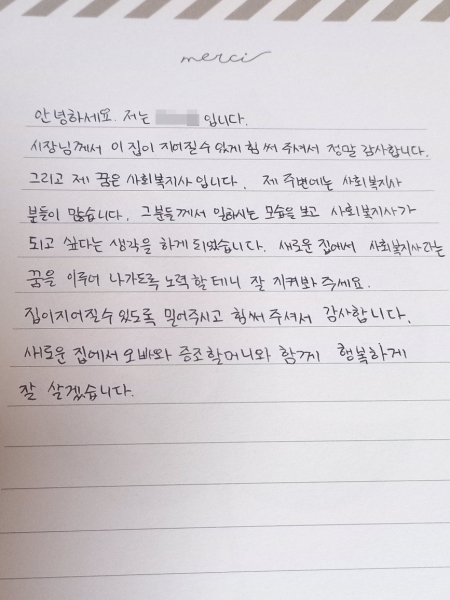 merci
안녕하세요. 저는 입니다.
시장님께서 이 집이 지어질수 있게 힘써 주셔서 정말 감사합니다.
그리고 제 꿈은 사회복지사 입니다. 제 주변에는 사회복지사
분들이 많습니다. 그분들께서 일하시는 모습을 보고 사회복지사가
되고 싶다는 생각을 하게 되었습니다. 새로운 집에서 사회복지사라는
꿈을 이루어 나가도록 노력할테니 잘 지켜봐 주세요.
집이지어질수 있도록 밀어주시고 힘써 주셔서 감사합니다.
새로운 집에서 오빠와 증조할머니와 함께 행복하게
잘 살겠습니다.